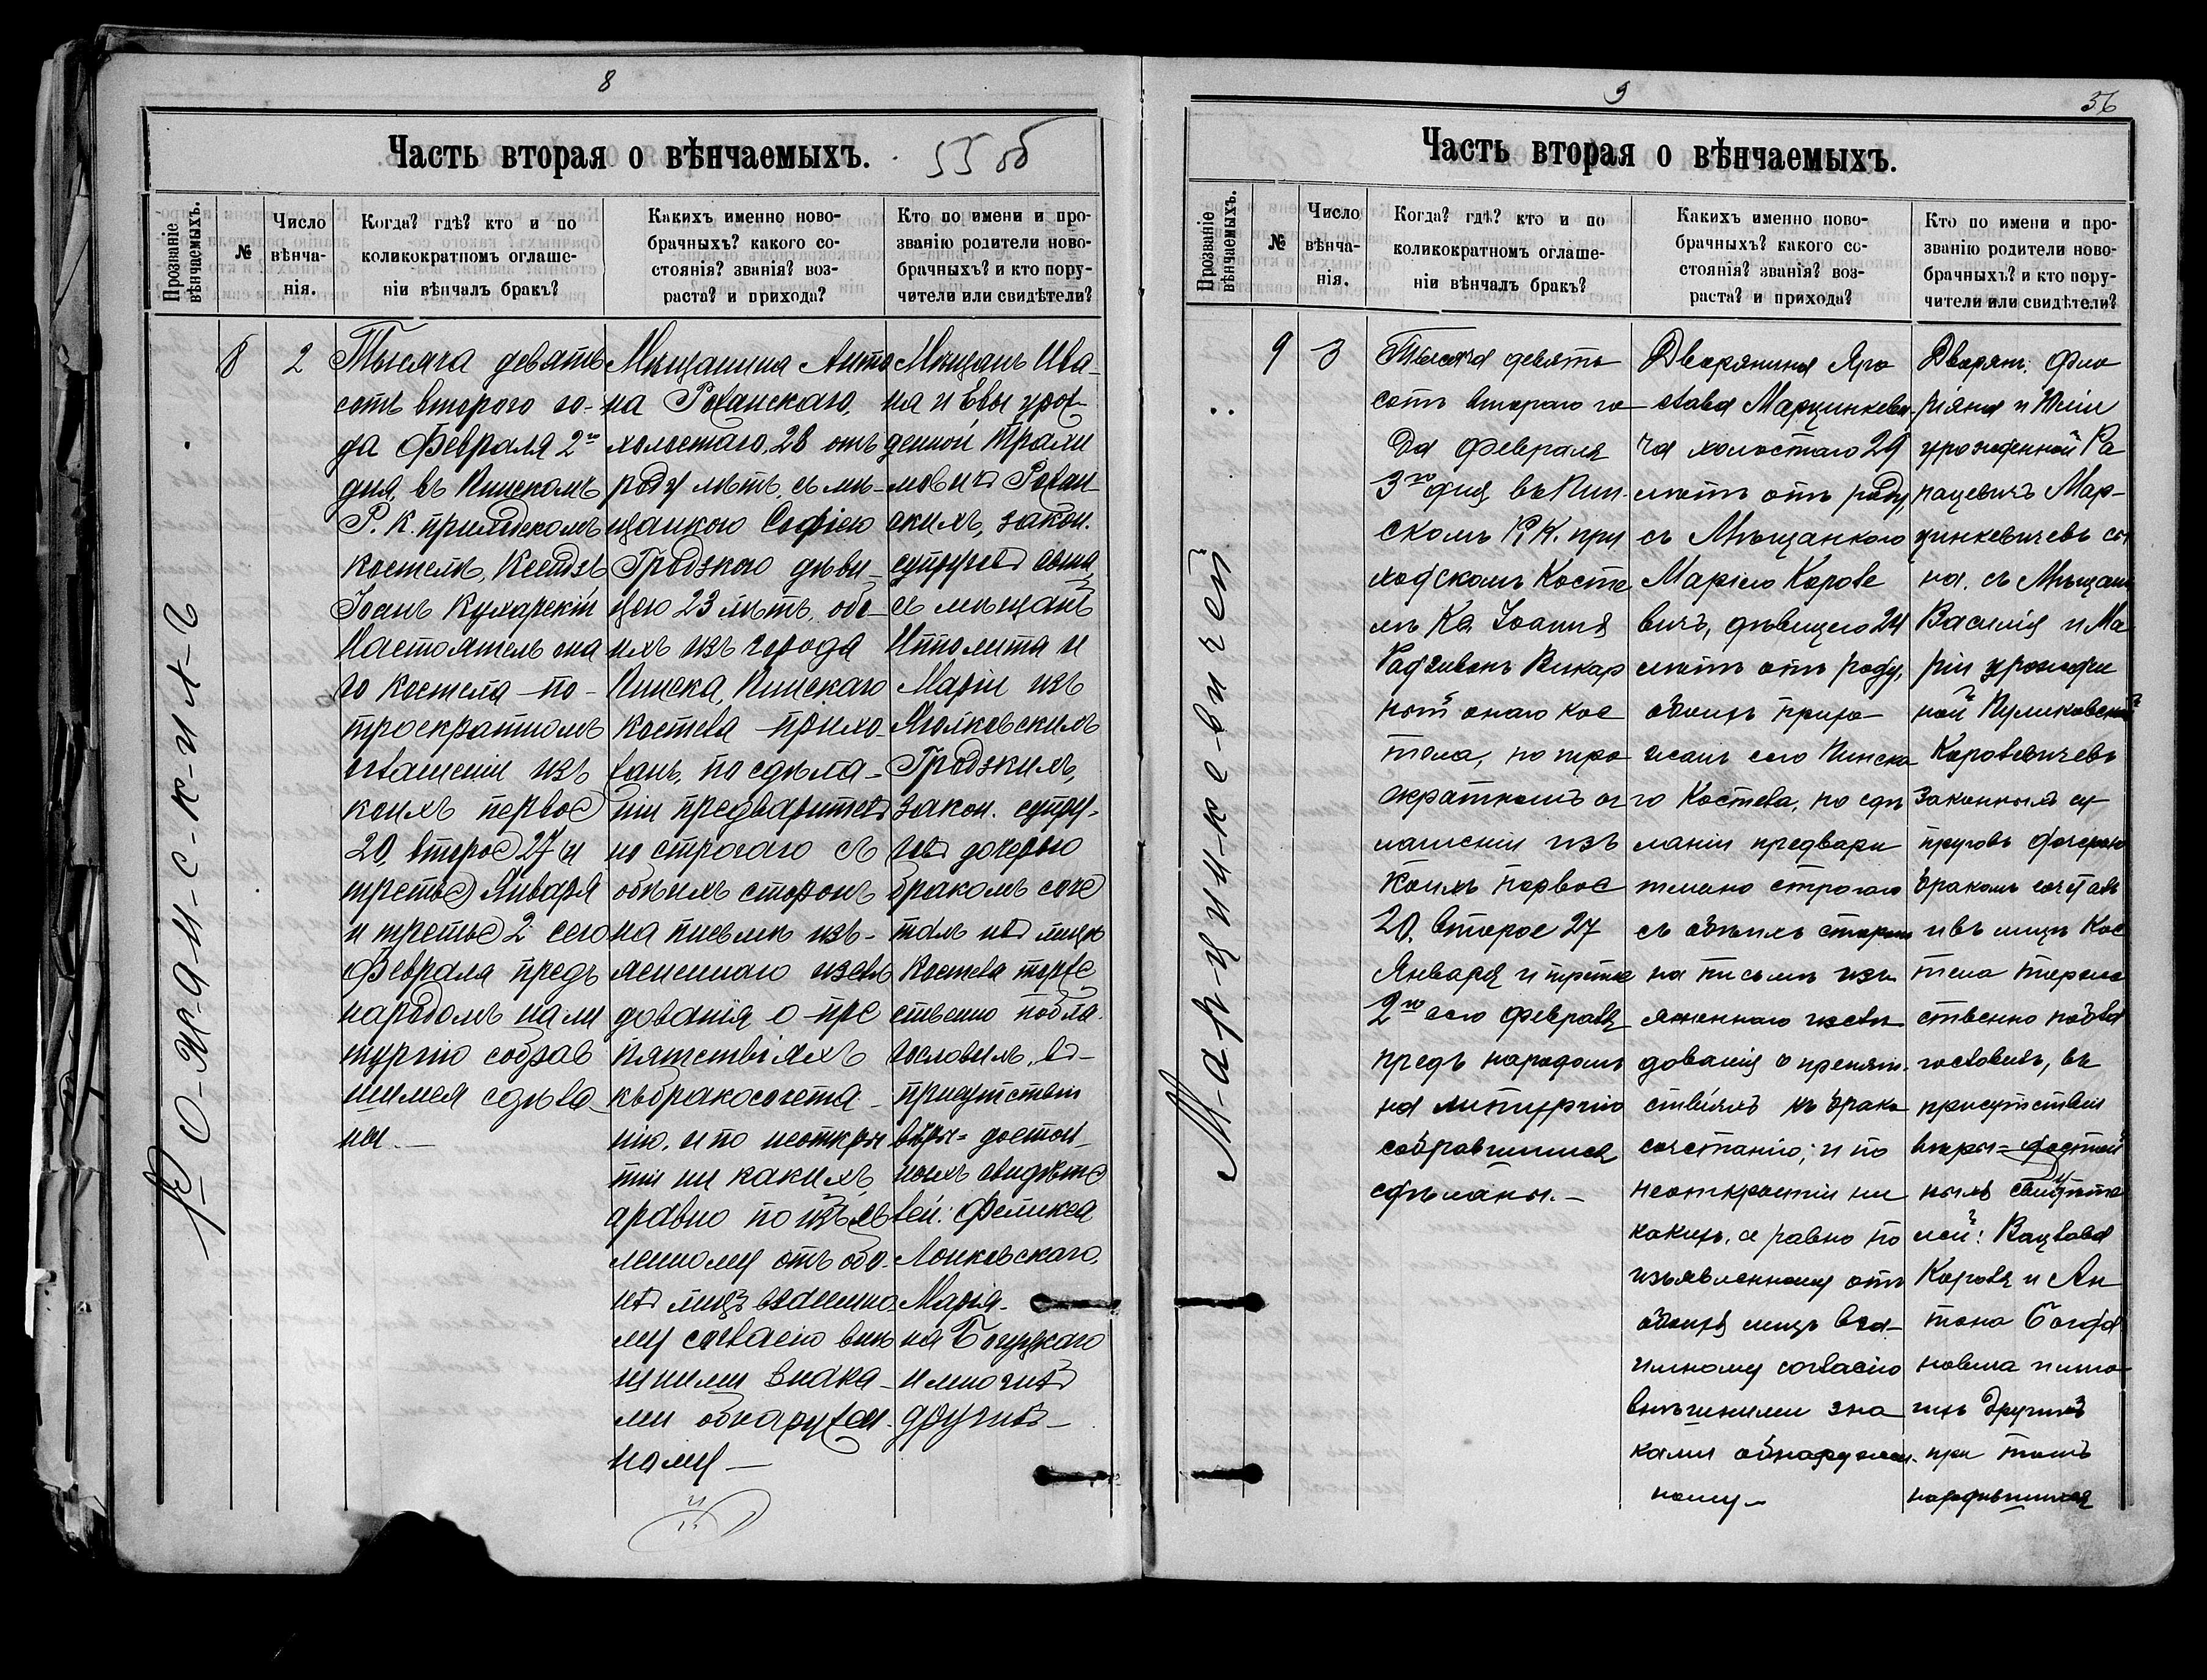 8
Часть вторая о вѣнчаемыхъ.
55 об
Прозваніе вѣнчаемыхъ.
№
Число вѣнча-нія.
Когда? гдѣ? кто и по
коликократномъ оглаше-
ніи вѣнчалъ бракъ?
Какихъ именно ново-
брачныхъ? какого со-
стоянія? званія? воз-
раста? и прихода?
Кто по имени и про-
званію родители ново-
брачныхъ? и кто пору-
чители или свидѣтели?
Р-о-ж-а-н-с-к-и-х-ъ
8
2
Тысяча девять
сотъ второго го-
да Февраля 2го
дня, въ Пинскомъ
Р. К. приходскомъ
костелѣ, Ксендзъ
Іоанъ Кухарскій
Настоятель она
го костела по
троекратномъ
оглашеніи изъ
коихъ первое
20, второе 27 и
третье Января
и третье 2 сего
Февраля предъ
народомъ на ли
тургію собрав
шимся сдѣла
ны.—
Мѣщанина Анто
на Рожанскаго,
холостаго, 28 отъ
роду лѣтъ, съ мѣ-
щанкою Софіею
Гродзкою дѣви-
цею 23 лѣтъ, обо-
ихъ изъ города
Пинска, Пинскаго
костела прихо-
жанъ, по сдѣла-
ніи предваритель
но строгаго съ
обѣихъ сторонъ
на письмѣ изъ-
ясненнаго изслѣ
дованія о пре
пятствіяхъ
къ бракосочета-
нію, и по неоткры
тіи ни какихъ,
а равно по изъяв
ленному отъ обо-
ихъ лицъ взаимно
му согласію внѣ
шними знака-
ми обнаружен-
ному—
Мѣщанъ Ива-
на и Евы урож
денной
Рожан-
скихъ, закон.
супруговъ сына,
съ мѣщанъ
Ипполита и
Маріи изъ
Гродзкихъ,
закон. супру-
говъ дочерью
бракомъ соче
талъ и въ лицѣ
костела торже
ственно побла-
гословилъ, въ
присутствіи
вѣры-достой-
ныхъ свидѣте
лей: Феликса
Лонковскаго,
Марія-
на Богуцкаго
и многихъ
другихъ—
9
36
Часть вторая о вѣнчаемыхъ.
Прозваніе вѣнчаемыхъ.
№
Число вѣнча-нія.
Когда? гдѣ? кто и по
коликократномъ оглаше-
ніи вѣнчалъ бракъ?
Какихъ именно ново-
брачныхъ? какого со-
стоянія? званія? воз-
раста? и прихода?
Кто по имени и про-
званію родители ново-
брачныхъ? и кто пору-
чители или свидѣтели?
М-а-р-ц-и-н-к-е-в-и-ч-е-й
9
3
Тысяча девять
сотъ втораго го-
да Февраля
3го дня въ Пин-
скомъ Р. К. при
ходскомъ Косте
лѣ Кс Іоаннъ
Радзивонъ Викар
ный онаго Кос
тела, по тро
екратномъ ог
лашеніи изъ
коихъ первое
20, второе 27
Января и третье
2го сего Февраля
предъ народомъ
на литургію
собравшимися
сдѣланы.—
Дворянина Яро
слава Марцинкеви-
ча холостаго 29
лѣтъ отъ роду,
съ Мѣщанкою
Маріею Короле
вичъ, дѣвицею 24
лѣтъ отъ роду,
обоихъ прихо-
жанъ сего Пинска
го Костела, по сдѣ
ланіи предвари
тельно строгаго
съ обѣихъ сторонъ
на письмѣ изъ
ясненнаго изслѣ
дованія о препят-
ствіяхъ къ брако
сочетанію; и по
неоткрытіи ни
какихъ, а равно по
изъявленному отъ
обоихъ лицъ вза-
имному согласію
внѣшними зна
ками обнаружен-
ному—
Дворян. Фло
ріяна и Юліи
урожденной Ра
пацевичъ Мар-
цинкевичевъ сы
на, съ Мѣщанъ
Василія и Ма
ріи урожден
ной Пуликовской
Королевичевъ
законныхъ су-
пруговъ дочерью
бракомъ сочеталъ
и въ лицѣ Кос
тела торже
ственно побла
гословилъ, въ
присутствіи
вѣры-достой
ныхъ свидѣте
лей: Вацлава
Короля и Ан
тона Богда
новича и мно-
гихъ другихъ
при томъ
находившихся